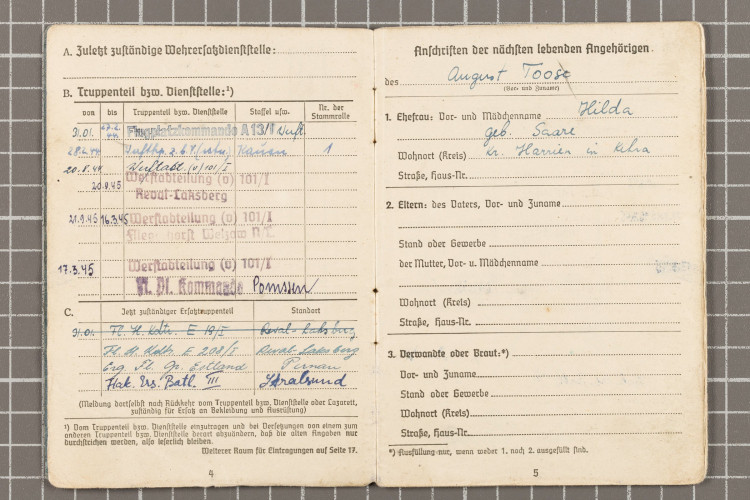 A. Zuletzt zuständige Wehrersatzdienststelle:
B. Truppenteil bzw. Dienststelle:¹)
von bis Truppenteil bzw. Dienststelle Staffel usw. Nr. der Stammrolle
31.01. Flugplatzkommando A 13/I
Kauen 1
20.8.44 101/I
20.9.45 Werftabteilung (v) 101/I
Reval-Laksberg
21.9.45 16.3.45 Werftabteilung (v) 101/I
Fliegerhorst Welzow N.L.
17.3.45 Werftabteilung (v) 101/I
Fl. Pl. Kommando Pomssen
C. Jetzt zuständiger Ersatztruppenteil Standort
31.01. Fl. H. Kdtr. E 18/I Reval-Laksberg
Fl. H. Kdtr. E 208/I Reval-Laksberg
Erg. Fl. Gr. Estland Pernau
Flak. Ers. Batl. III Stralsund
(Meldung dortselbst nach Rückkehr vom Truppenteil bzw. Dienststelle oder Lazarett,
zuständig für Ersatz an Bekleidung und Ausrüstung)
¹) Vom Truppenteil bzw. Dienststelle einzutragen und bei Versetzungen von einem zum
anderen Truppenteil bzw. Dienststelle derart abzuändern, daß die alten Angaben nur
durchstrichen werden, also leserlich bleiben.
Weiterer Raum für Eintragungen auf Seite 17.
4
Anschriften der nächsten lebenden Angehörigen
des August Toose
(Vor- und Zuname)
1. Ehefrau: Vor- und Mädchenname Hilda
geb. Saare
Wohnort (Kreis) Kr. Harrien in Kehra
Straße, Haus-Nr.
2. Eltern: des Vaters, Vor- und Zuname
Stand oder Gewerbe
der Mutter, Vor- u. Mädchenname
Wohnort (Kreis)
Straße, Haus-Nr.
3. Verwandte oder Braut:*)
Vor- und Zuname
Stand oder Gewerbe
Wohnort (Kreis)
Straße, Haus-Nr.
*) Ausfüllung nur, wenn weder 1. noch 2. ausgefüllt sind.
5